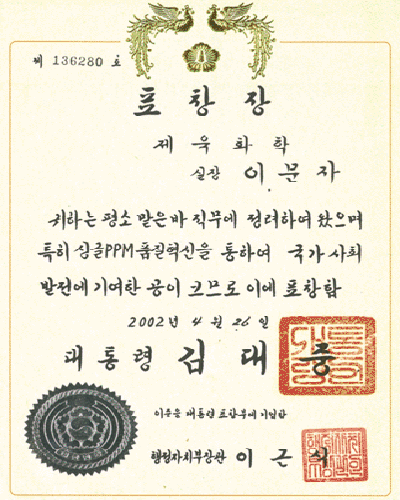 제 136280 호
표 창 장
제 육 화 학
실장 이 문 자
귀하는 평소 맡은바 직무에 정려하여 왔으며
특히 싱글PPM 품질혁신을 통하여 국가 사회
발전에 기여한 공이 크므로 이에 표창함
2002 년 4 월 26 일
대 통 령 김 대 중
이 증을 대통령 표창부에 기입함
행정자치부장관 이 근 식